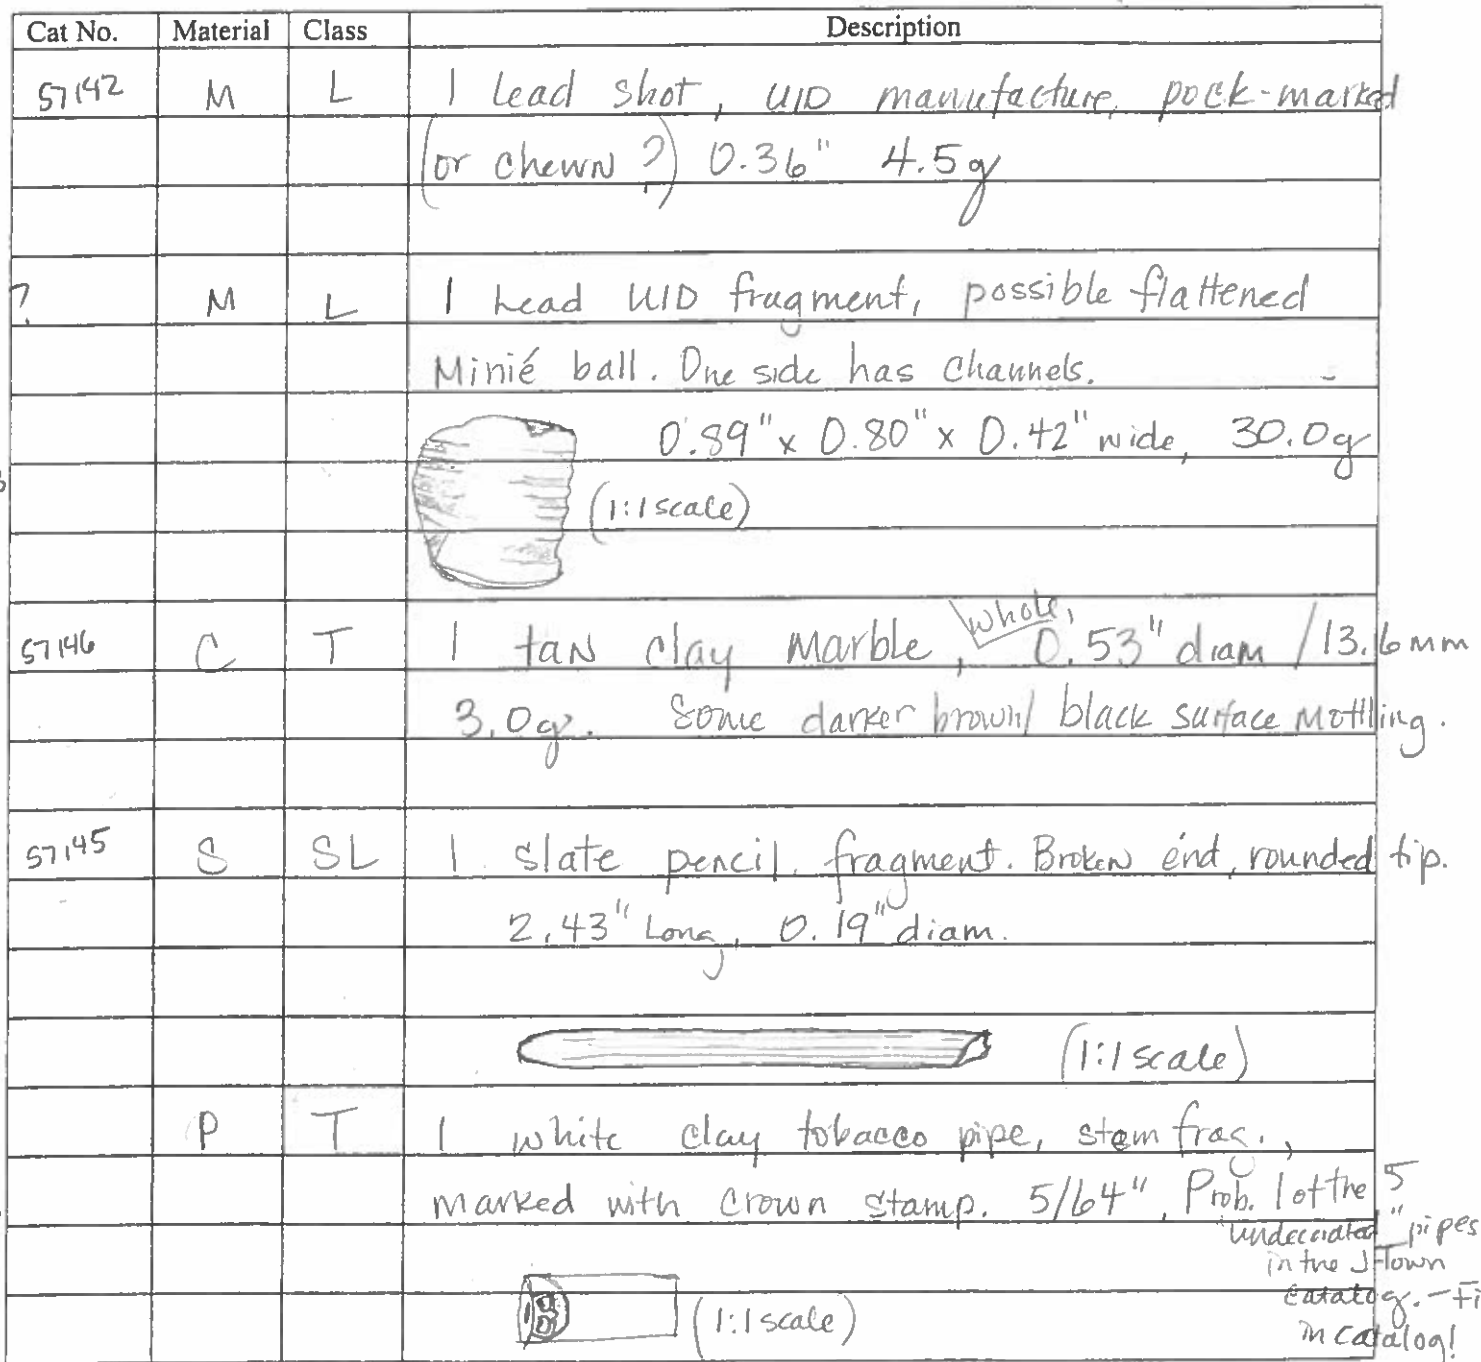 Cat No. Material Class Description
57142 M L 1 lead shot, UID manufacture, pock-marked
(or chewn ?) 0.36" 4.5g
? M L 1 Lead UID fragment, possible flattened
Minié ball. One side has channels.
0.89" x 0.80" x 0.42" wide, 30.0g
(1:1 scale)
57146 C T 1 tan clay marble, whole, 0.53" diam / 13.6mm
3.0g. Some darker brown/ black surface mottling.
57145 S SL 1 slate pencil fragment. Broken end, rounded tip.
2.43" Long, 0.19" diam.
(1:1 scale)
P T 1 white clay tobacco pipe, stem frag.,
marked with crown stamp. 5/64", Prob. 1 of the 5
"undecorated" pipes
in the J-Town
catalog. - Fi
in catalog!
(1:1 scale)